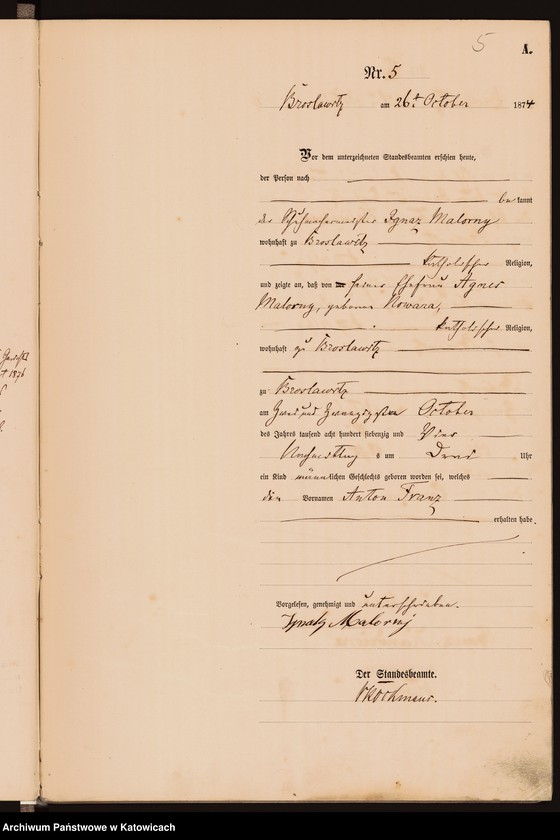 5
A.
Nr. 5
Broslawitz am 26t October 1874
Vor dem unterzeichneten Standesbeamten erschien heute,
der Person nach
bekannt
der Schuhmachermeister Ignaz Malorny
wohnhaft zu Broslawitz
katholischer Religion,
und zeigte an, daß von seiner Ehefrau Agnes
Malorny, geborne Nowara,
katholischer Religion,
wohnhaft zu Broslawitz
zu Broslawitz
am Zwei und Zwanzigsten October
des Jahres tausend acht hundert siebenzig und Vier
Nachmittags um Drei Uhr
ein Kind männlichen Geschlechts geboren worden sei, welches
den Vornamen Anton Franz
erhalten habe.
Vorgelesen, genehmigt und unterschrieben.
Ignatz Malorny
Der Standesbeamte.
1876
Archiwum Państwowe w Katowicach